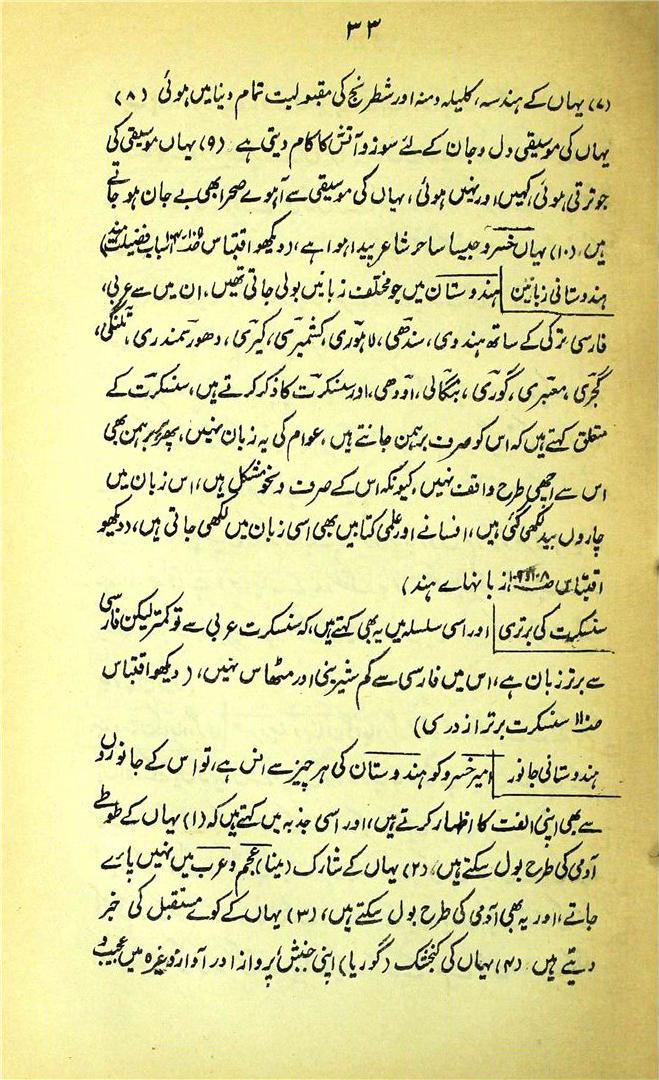 ۳۳
(۷) یہاں کے ہندسہ، کلیلہ دمنہ اور شطرنج کی مقبولیت تمام دنیا میں ہوئی (۸)
یہاں کی موسیقی دل و جان کے لئے سوز و آتش کا کام دیتی ہے (۹) یہاں موسیقی کی
جو ترقی ہوئی، کہیں اور نہیں ہوئی، یہاں کی موسیقی سے آہوے صحرا بھی بے جان ہو جاتے
ہیں (۱۰) یہاں خسرو جیسا ساحر شاعر پیدا ہوا ہے، (دیکھو اقتباس
ہندوستانی زبانیں ہندوستان میں جو مختلف زبانیں بولی جاتی تھیں، ان میں سے عربی،
فارسی ترکی کے ساتھ ہندوی، سندھی، لاہوری، کشمیری، کبری، دھور سمندری، تلنگی،
گجری، معبری، گوری، بنگالی، اودھی، اور سنسکرت کا ذکر کرتے ہیں، سنسکرت کے
متعلق کہتے ہیں کہ اس کو صرف برہمن جانتے ہیں، عوام کی یہ زبان نہیں، پھر ہر برہمن بھی
اس سے اچھی طرح واقف نہیں، کیونکہ اس کے صرف و نحو مشکل ہیں، اس زبان میں
چاروں بید لکھی گئی ہیں، افسانے اور علمی کتابیں بھی اسی زبان میں لکھی جاتی ہیں، (دیکھو
اقتباس زبانہاے ہند)
سنسکرت کی برتری اور اسی سلسلہ میں یہ بھی کہتے ہیں، کہ سنسکرت عربی سے تو کمتر لیکن فارسی
سے برتر زبان ہے، اس میں فارسی سے کم شیرینی اور مٹھاس نہیں، (دیکھو اقتباس
سنسکرت برتر از دری)
ہندوستانی جانور امیر خسرو کو ہندوستان کی ہر چیز سے انس ہے، تو اس کے جانوروں
سے بھی اپنی الفت کا اظہار کرتے ہیں، اور اسی جذبہ میں کہتے ہیں کہ (۱) یہاں کے طوطے
آدمی کی طرح بول سکتے ہیں، (۲) یہاں کے شارک (مینا) عجم و عرب میں نہیں پائے
جاتے، اور یہ بھی آدمی کی طرح بول سکتے ہیں، (۳) یہاں کے کوے مستقبل کی خبر
دیتے ہیں (۴) یہاں کی کنجشک (گوریا) اپنی جنبش، پرواز اور آواز وغیرہ میں عجیب و